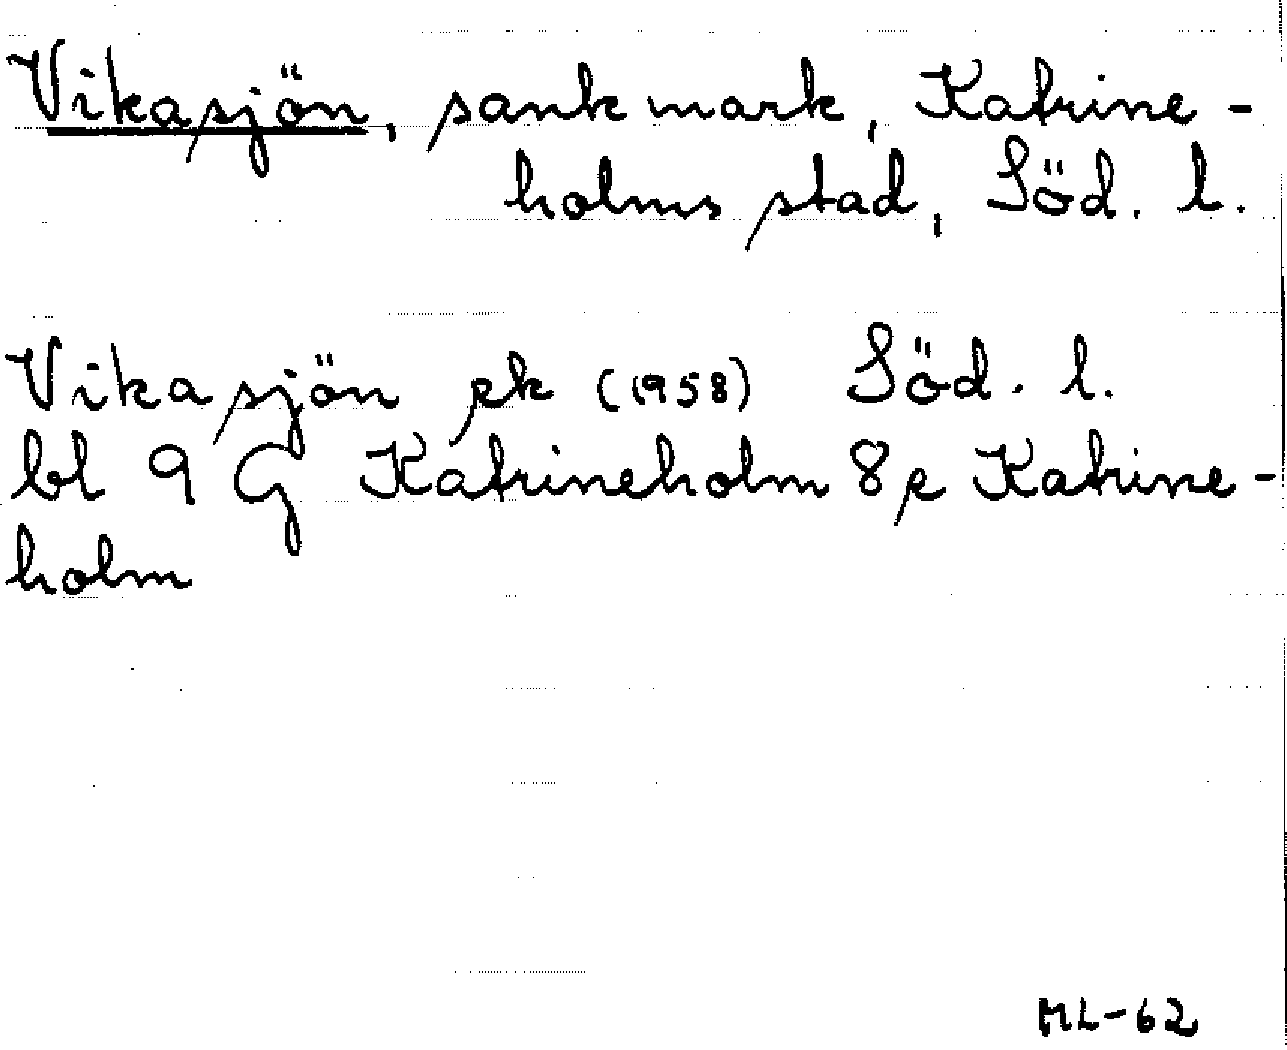 Vikasjön, sankmark, Katrine-
holms stad, Söd. l.
Vikasjön ek (1958) Söd. l.
bl 9 G Katrineholm 8 e Katrine-
holm
ML-62